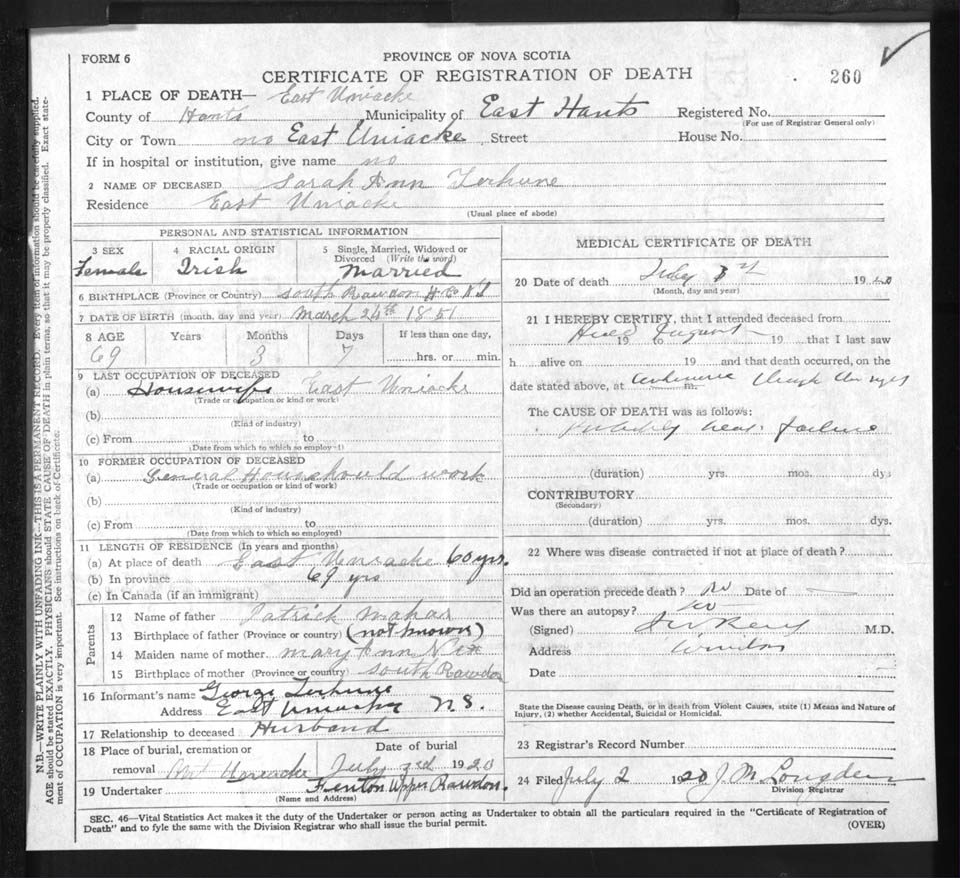 FORM 6
PROVINCE OF NOVA SCOTIA
CERTIFICATE OF REGISTRATION OF DEATH
260
1 PLACE OF DEATH— East Uniacke
County of Hants Municipality of East Hants Registered No.
(For use of Registrar General only)
City or Town no East Uniacke Street House No.
If in hospital or institution, give name no
2 NAME OF DECEASED Sarah Ann Terhune
Residence East Uniacke
(Usual place of abode)
PERSONAL AND STATISTICAL INFORMATION
3 SEX 4 RACIAL ORIGIN 5 Single, Married, Widowed or Divorced (Write the word)
Female Irish Married
6 BIRTHPLACE (Province or Country) South Rawdon H Co N S
7 DATE OF BIRTH (month, day and year) March 24th 1851
8 AGE Years Months Days If less than one day,
69 3 7 hrs. or min.
9 LAST OCCUPATION OF DECEASED
(a) Housewife East Uniacke
(Trade or occupation or kind or work)
(b)
(Kind of industry)
(c) From to
(Date from which to which so employed)
10 FORMER OCCUPATION OF DECEASED
(a) General Househould work
(Trade or occupation or kind of work)
(b)
(Kind of industry)
(c) From to
(Date from which to which so employed)
11 LENGTH OF RESIDENCE (In years and months)
(a) At place of death East Uniacke 60 yrs.
(b) In province 69 yrs
(c) In Canada (if an immigrant)
Parents
12 Name of father Patrick Mahar
13 Birthplace of father (Province or country) (not known)
14 Maiden name of mother Mary Ann Nix
15 Birthplace of mother (Province or country) South Rawdon
16 Informant's name George Terhune
Address East Uniacke N.S.
17 Relationship to deceased Husband
18 Place of burial, cremation or removal Date of burial
Mt Uniacke July 3rd 1920
19 Undertaker Fenton Upper Rawdon.
(Name and Address)
MEDICAL CERTIFICATE OF DEATH
20 Date of death July 1920
(Month, day and year)
21 I HEREBY CERTIFY, that I attended deceased from
19 to 19 that I last saw
h alive on 19 and that death occurred, on the
date stated above, at m.
The CAUSE OF DEATH was as follows:
Probably heart failure
(duration) yrs. mos. dys
CONTRIBUTORY
(Secondary)
(duration) yrs. mos. dys.
22 Where was disease contracted if not at place of death?
Did an operation precede death? No Date of —
Was there an autopsy? No
(Signed) M.D.
Address Windsor
Date
State the Disease causing Death, or in death from Violent Causes, state (1) Means and Nature of Injury, (2) whether Accidental, Suicidal or Homicidal.
23 Registrar's Record Number
24 Filed July 2 1920 J. M Longden
Division Registrar
SEC. 46—Vital Statistics Act makes it the duty of the Undertaker or person acting as Undertaker to obtain all the particulars required in the "Certificate of Registration of
Death" and to fyle the same with the Division Registrar who shall issue the burial permit. (OVER)
N.B.—WRITE PLAINLY WITH UNFADING INK—THIS IS A PERMANENT RECORD. Every item of information should be carefully supplied.
AGE should be stated EXACTLY. PHYSICIANS should STATE CAUSE OF DEATH in plain terms, so that it may be properly classified. Exact state-
ment of OCCUPATION is very important. See instructions on back of Certificate.